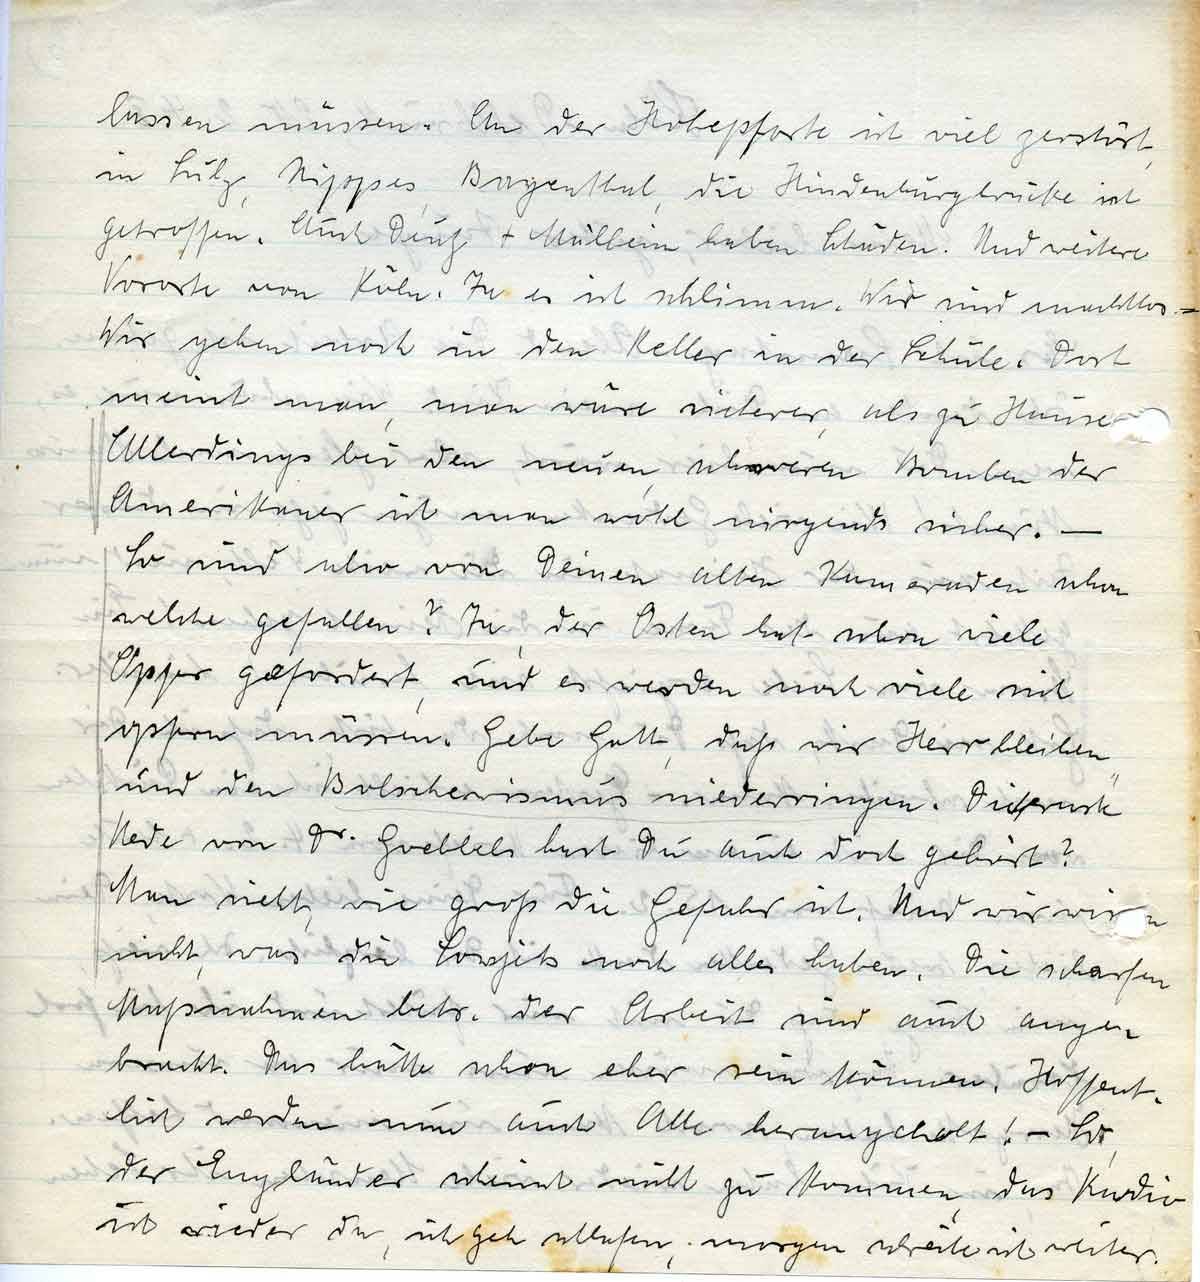 lassen müssen. An der Hohepforte ist viel zerstört,
in Sülz, Nippes, Bayenthal, die Hindenburgbrücke ist
getroffen. Auch Deutz + Mülheim haben Schäden. Und weitere
Vororte von Köln. Ja es ist schlimm. Wir sind machtlos. –
Wir gehen noch in den Keller in der Schule. Dort
meint man, man wäre sicherer, als zu Hause
Allerdings bei den neuen, schweren Bomben der
Amerikaner ist man wohl nirgends sicher. –
So sind also von Deinen alten Kameraden schon
welche gefallen? Ja, der Osten hat schon viele
Opfer gefordert, und es werden noch viele sich
opfern müssen. Gebe Gott, daß wir Herr bleiben
und den Bolschewismus niederringen. Die ernste
Rede von Dr. Goebbels hast Du auch doch gehört?
Man sieht, wie groß die Gefahr ist. Und wir wissen
nicht, was die Sowjets noch alles haben. Die scharfen
Maßnahmen betr. der Arbeit sind auch ange-
bracht. Das hätte schon eher sein können. Hoffent-
lich werden nun auch Alle herangeholt! – So,
der Engländer scheint nicht zu kommen, das Radio
ist wieder da, ich geh schlafen, morgen schreibe ich weiter.